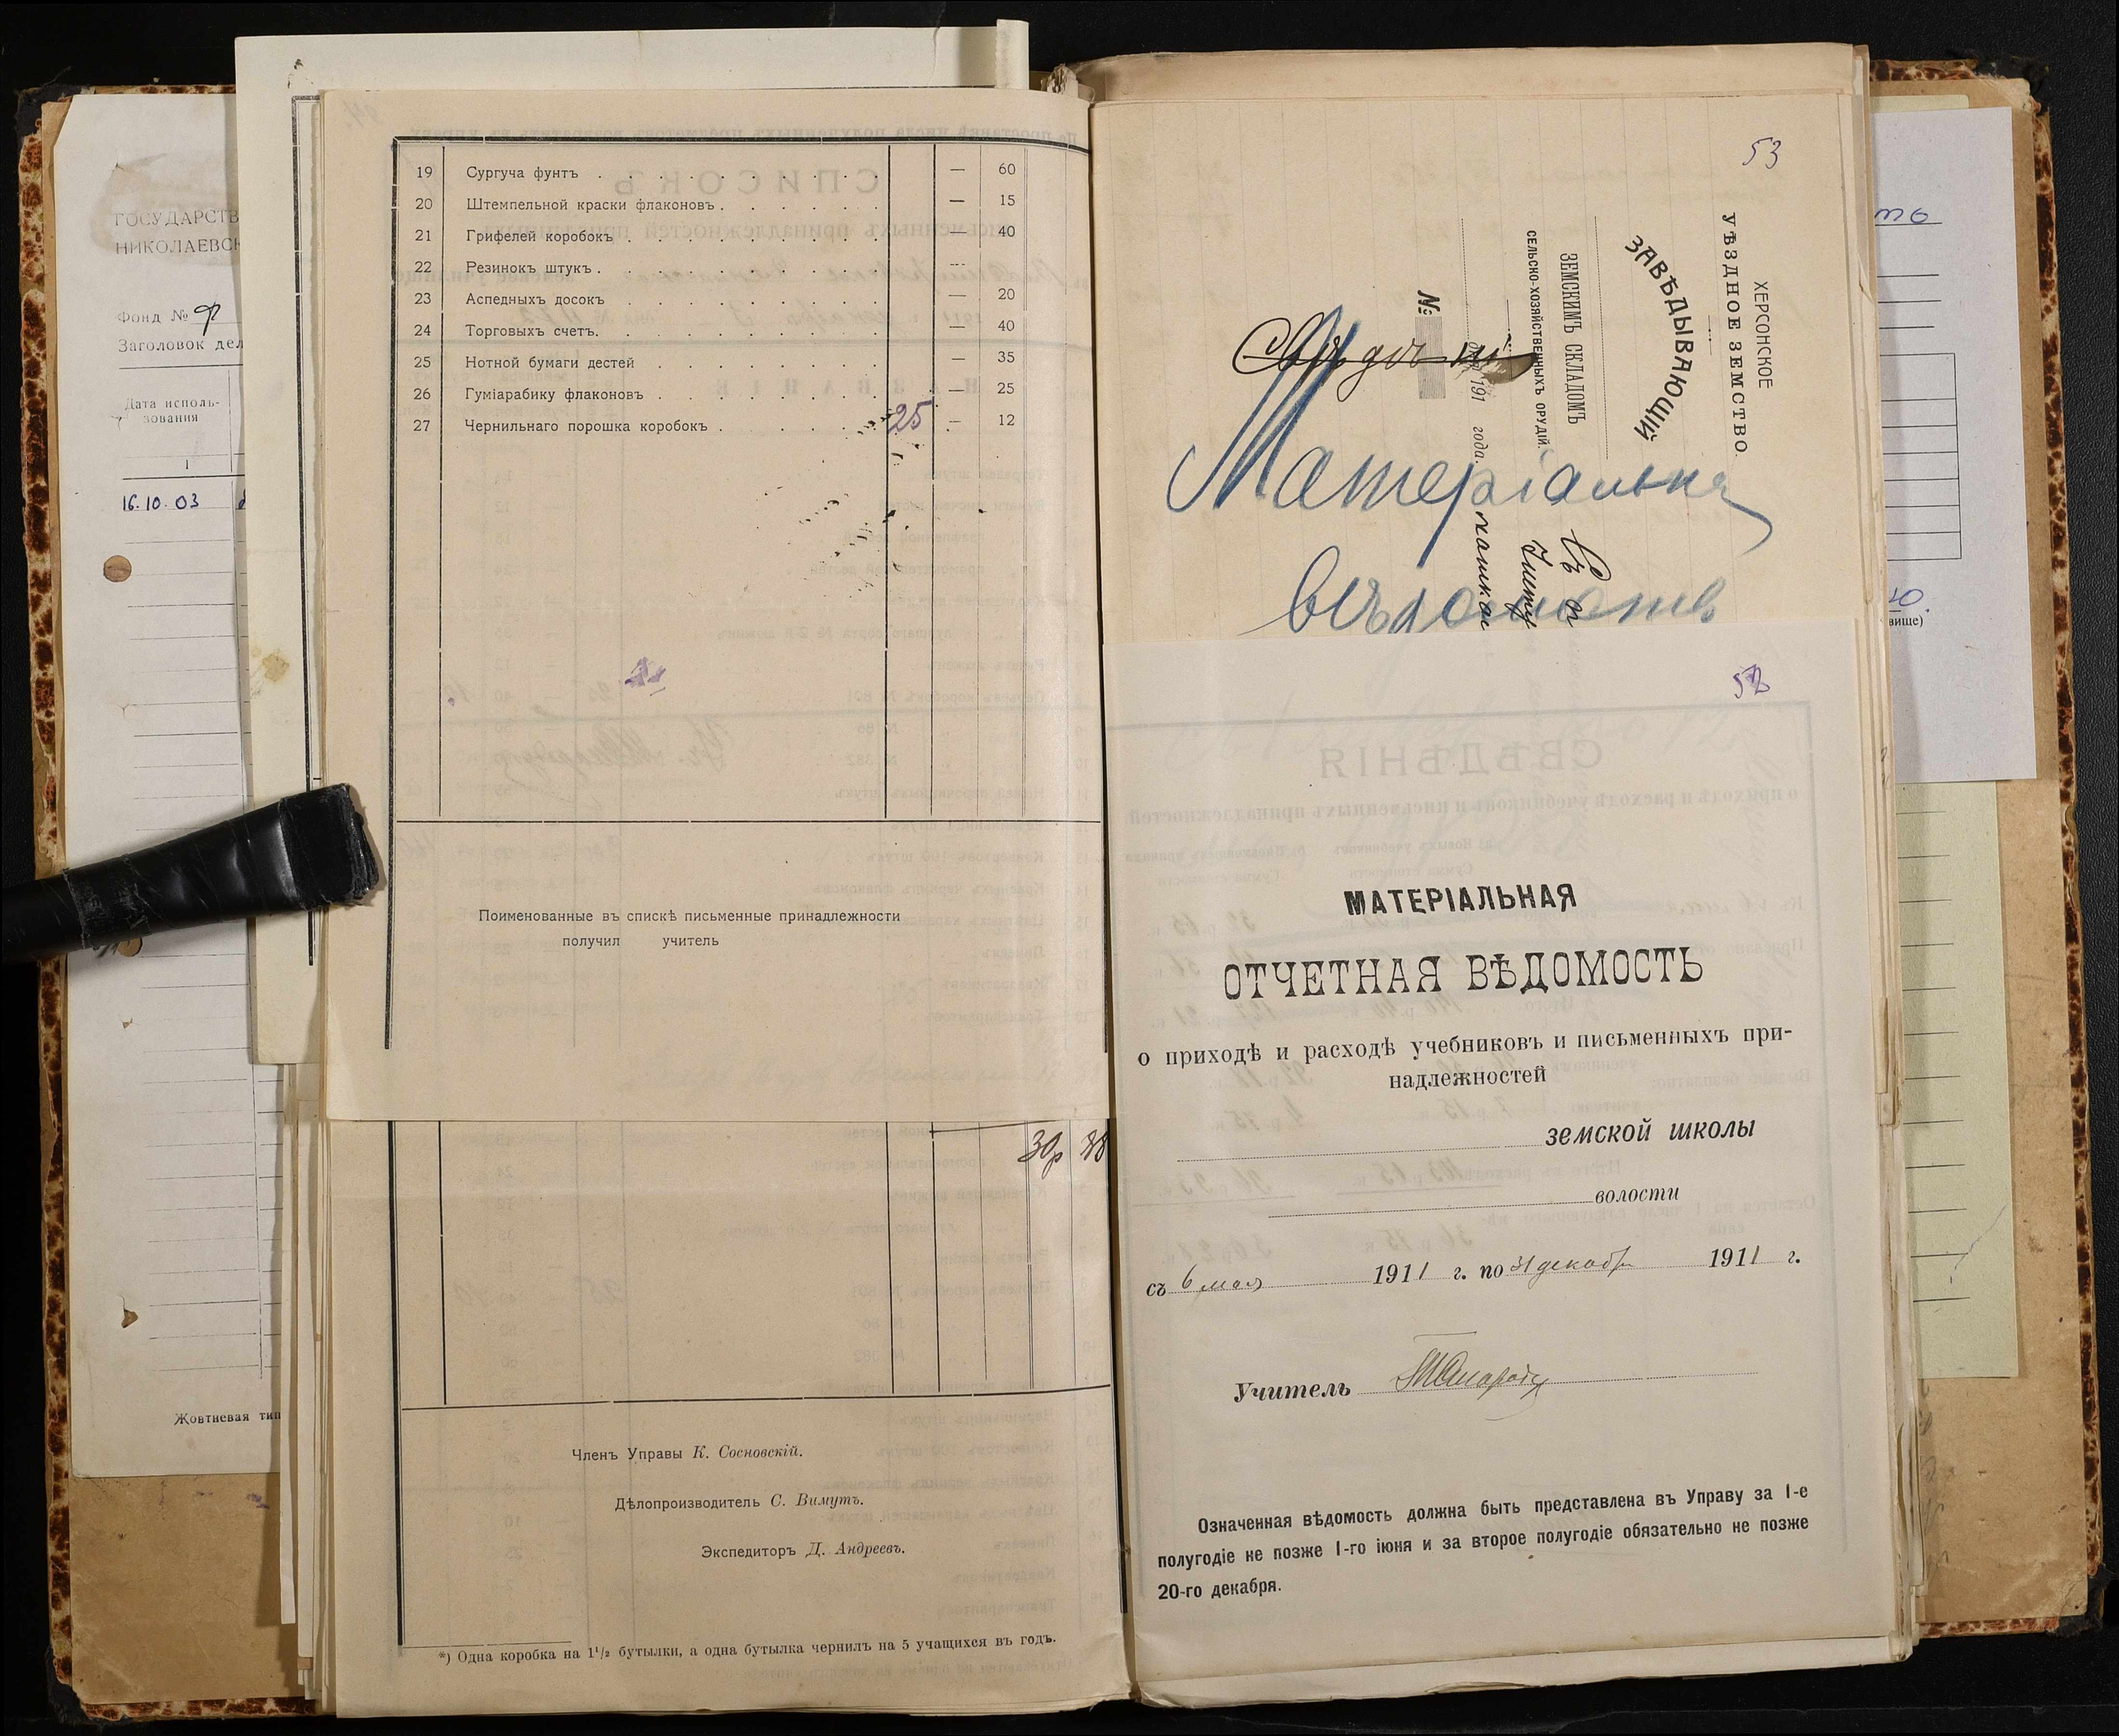 ГОСУДАРСТВ
НИКОЛАЕВСК
Фонд № Ф
Заголовок дел
Дата исполь-
зования
1
16.10.03
Жовтневая тип
19 Сургуча фунтъ — 60
20 Штемпельной краски флаконовъ — 15
21 Грифелей коробокъ — 40
22 Резинокъ штукъ —
23 Аспедныхъ досокъ — 20
24 Торговыхъ счетъ — 40
25 Нотной бумаги дестей — 35
26 Гуміарабику флаконовъ — 25
27 Чернильнаго порошка коробокъ 25 — 12
Поименованные въ спискѣ письменные принадлежности
получил учитель
30р 38
Членъ Управы К. Сосновскій.
Дѣлопроизводитель С. Вимутъ.
Экспедиторъ Д. Андреевъ.
*) Одна коробка на 1½ бутылки, а одна бутылка чернилъ на 5 учащихся въ годъ.
53
ХЕРСОНСКОЕ
УѢЗДНОЕ ЗЕМСТВО.
ЗАВѢДЫВАЮЩІЙ
ЗЕМСКИМЪ СКЛАДОМЪ
СЕЛЬСКО-ХОЗЯЙСТВЕННЫХЪ ОРУДІЙ.
191 года.
№
Матеріальна
вѣдомость
МАТЕРІАЛЬНАЯ
ОТЧЕТНАЯ ВѢДОМОСТЬ
о приходѣ и расходѣ учебниковъ и письменныхъ при-
надлежностей
земской школы
волости
съ 6 мая 1911 г. по 31 декабр 1911 г.
Учитель
Означенная вѣдомость должна быть представлена въ Управу за 1-е
полугодіе не позже 1-го іюня и за второе полугодіе обязательно не позже
20-го декабря.
вище)